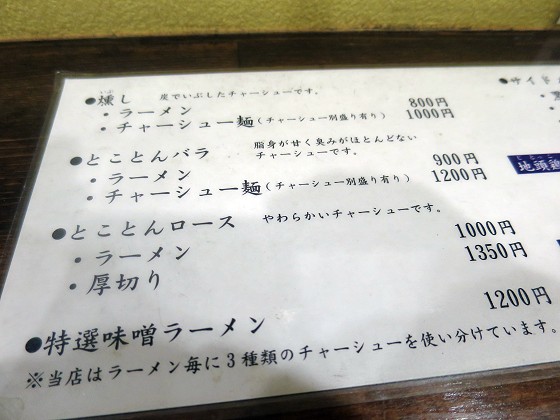 ●燻し 炭でいぶしたチャーシューです。
・ラーメン 800円
・チャーシュー麺(チャーシュー別盛り有り) 1000円
●とことんバラ 脂身が甘く臭みがほとんどない
チャーシューです。
・ラーメン 900円
・チャーシュー麺(チャーシュー別盛り有り) 1200円
●とことんロース やわらかいチャーシューです。
・ラーメン 1000円
・厚切り 1350円
●特選味噌ラーメン 1200円
※当店はラーメン毎に3種類のチャーシューを使い分けています。
●サイド
地頭鶏